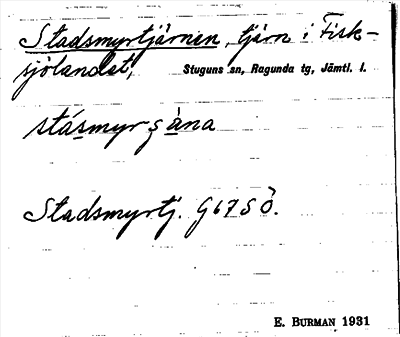 Stadsmyrtjärnen, tjärn i Fisk-
sjölandet, Stuguns sn, Ragunda tg, Jämtl. l.
stásmyrşàna
Stadsmyrtj. G67SÖ.
E. BURMAN 1931